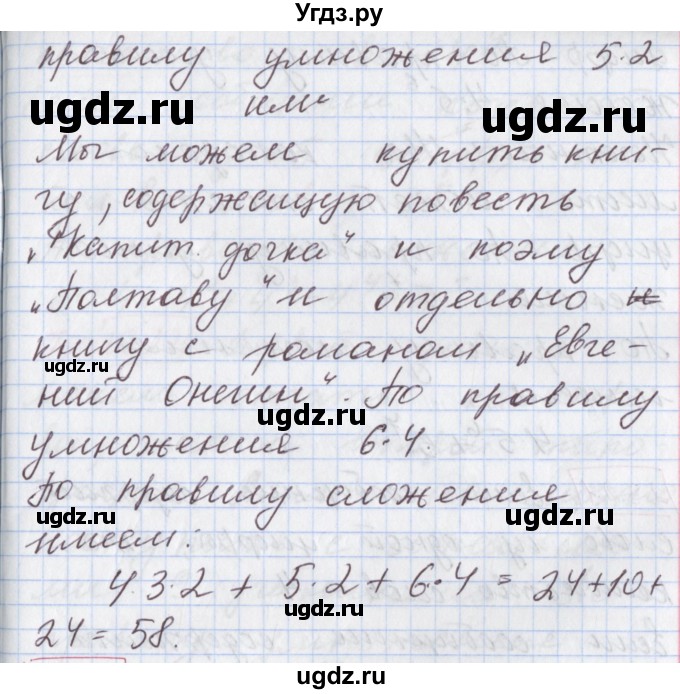 Угдз.ру
правилу умножения 5·2
или
Мы можем купить кни-
гу, содержащую повесть
„Капит. дочка“ и поэму
„Полтаву“ и отдельно и
книгу с романом „Евге-
ний Онегин“. По правилу
умножения 6·4.
По правилу сложения
имеем:
4·3·2 + 5·2 + 6·4 = 24+10+
24 = 58.
ugdz.ru
ugdz.ru
ugdz.ru
ugdz.ru
ugdz.ru
ugdz.ru
ugdz.ru
ugdz.ru
ugdz.ru
ugdz.ru